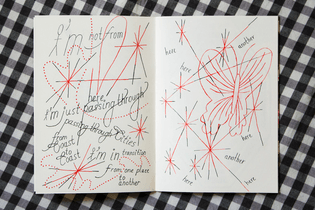 I'm not from
here
I'm just passing through
passing through cities
from
coast
to
coast
I'm in transition
from one place
to
another
here
another
here
here
another
here
here